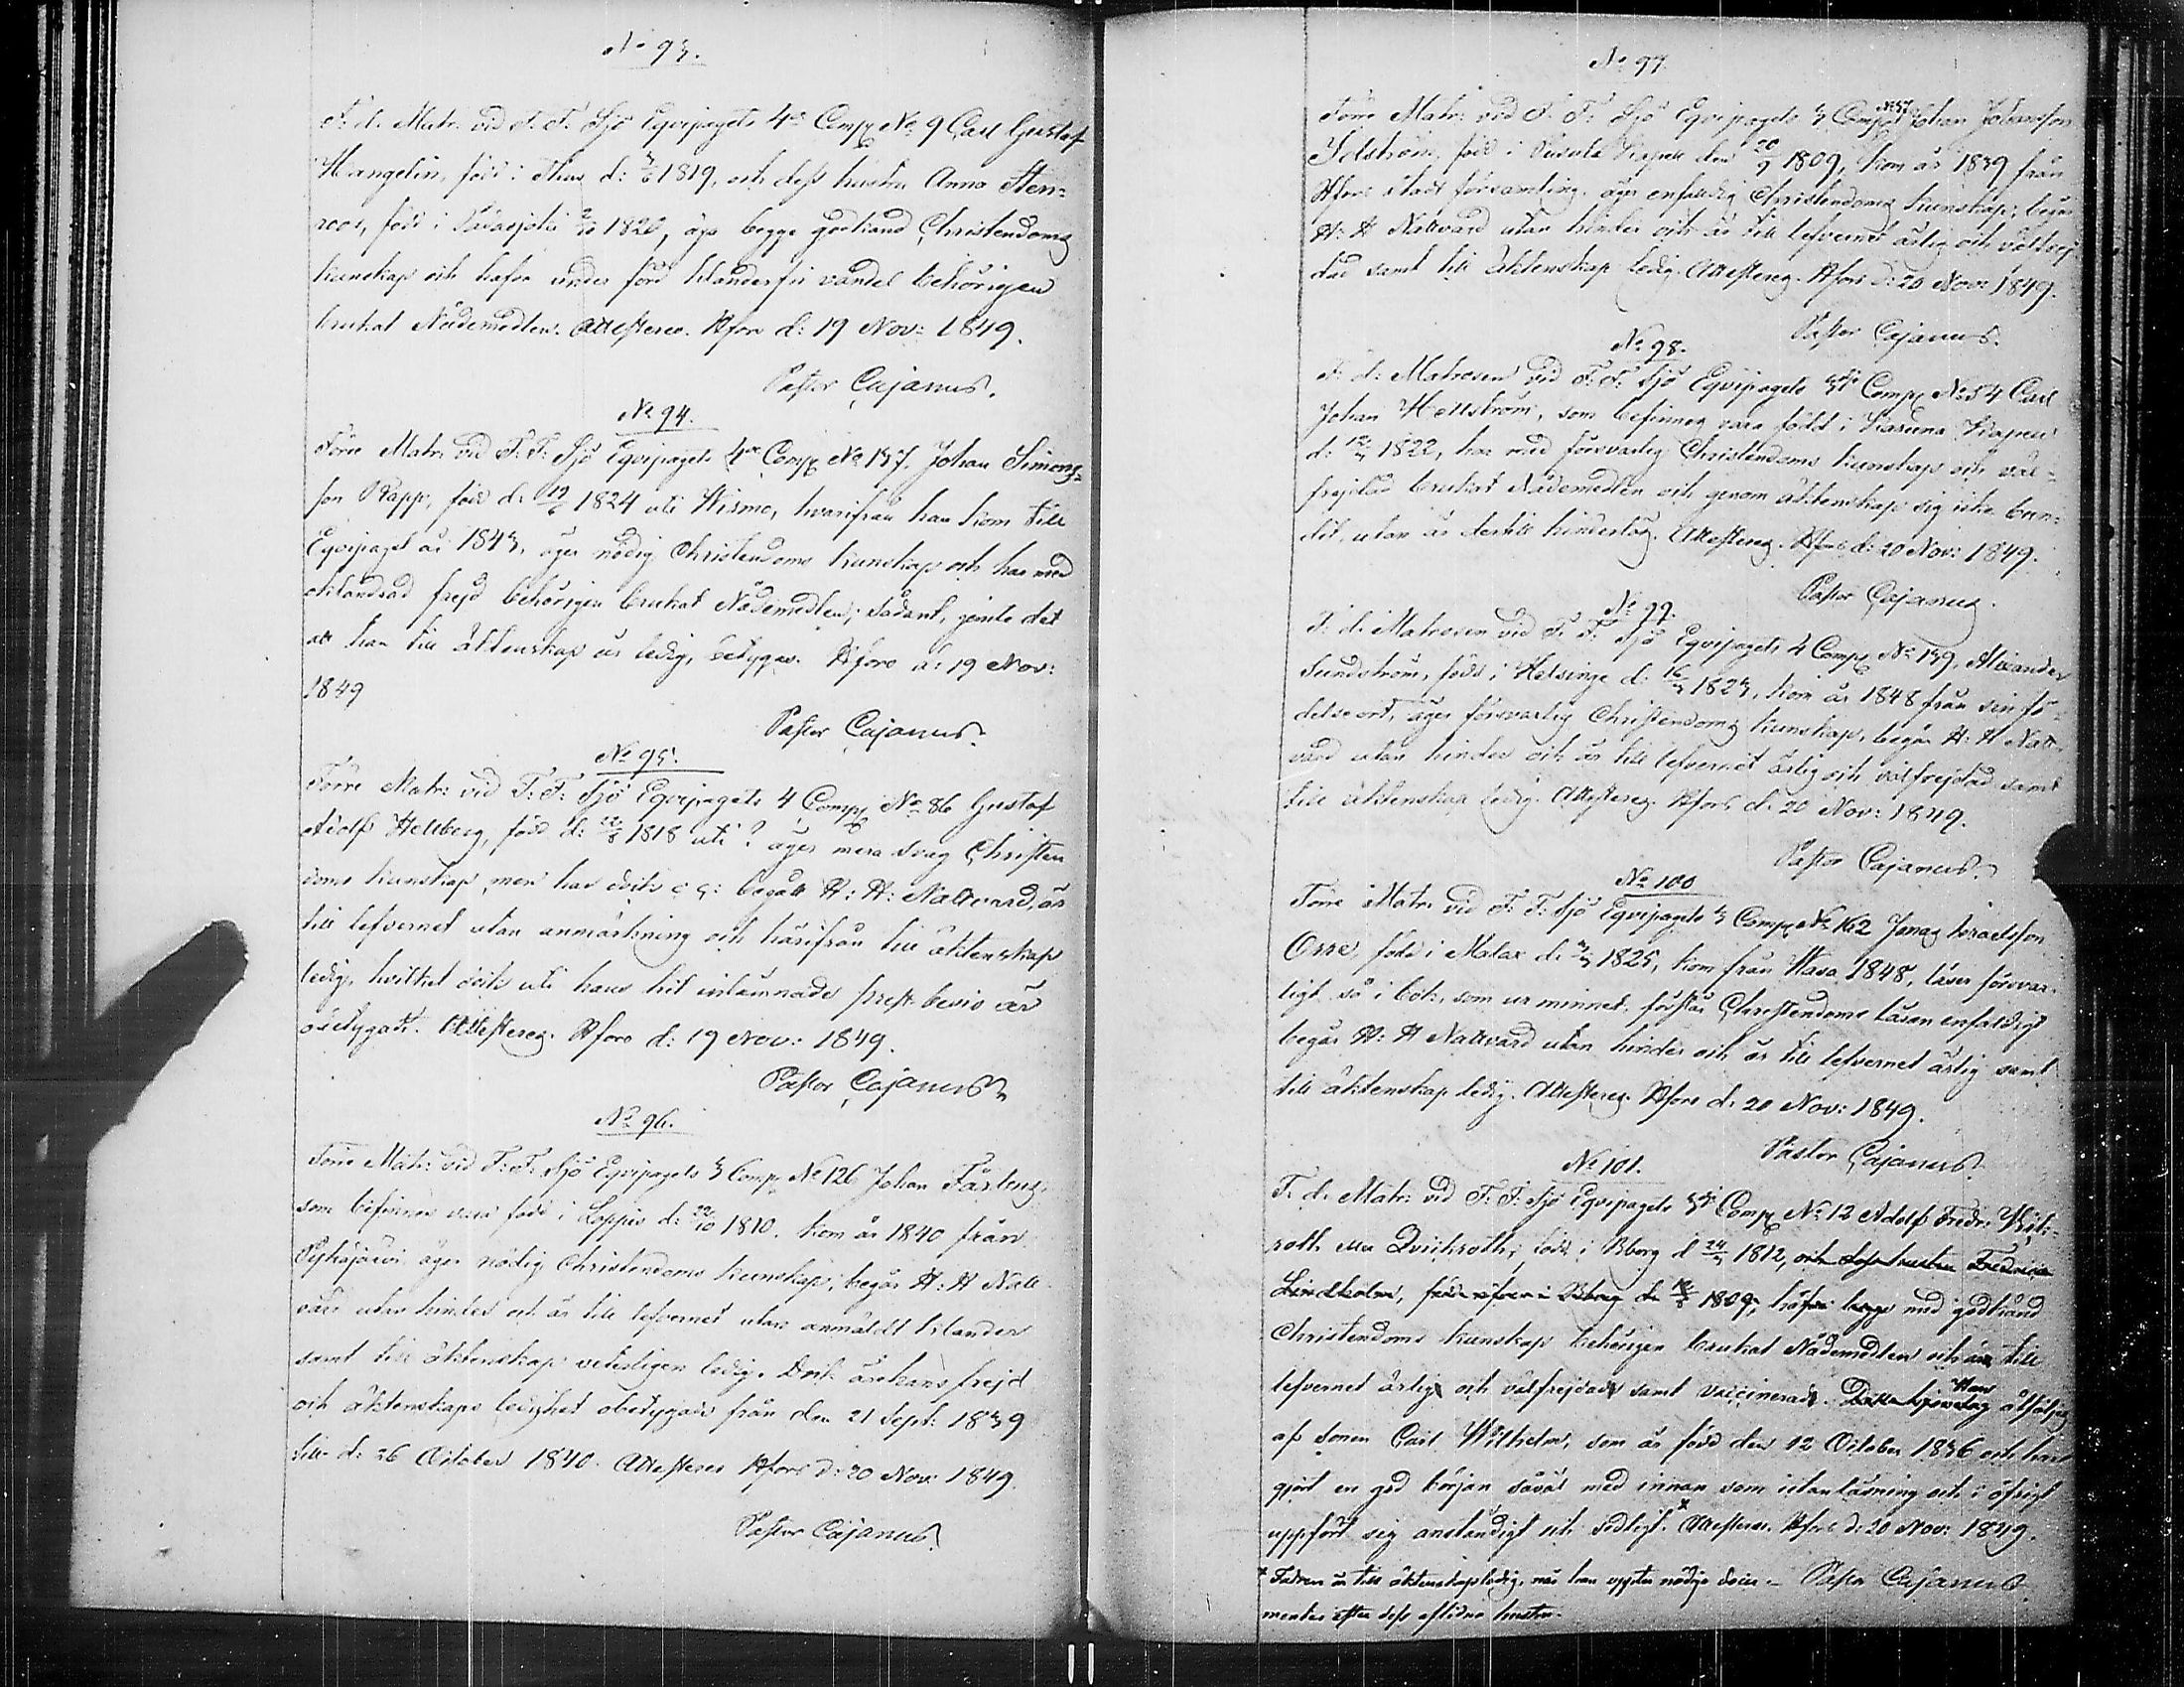 No 93.
F. d. Matr. vid F. F. Sjö Equipagets 4e Comp No 9 Carl Gustaf
Hangelin, född i d: 3/6 1819, och dess hustru Anna Sten-
roos, född i Padasjoki 2/10 1820, äga begge godkänd Christendoms
kunskap och hafva under förd klanderfri vandel behörigen
brukat Nådemedlen. Attesteras. Hfors d: 19 Nov: 1849.
Pastor Cajanus.
No 94.
Förre Matr. vid F. F. Sjö Equipagets 4e Comp No 137. Johan Simons-
son Rapp, född d: 19/6 1824 uti Wirmo, hvarifrån han kom till
Equipaget år 1843, äger nödig Christendoms kunskap och har med
oklandrad frejd behörigen brukat Nådemedlen; Sådant, jemte det
att han till äktenskap är ledig, betygas. Hfors d: 19 Nov:
1849
Pastor Cajanus.
No 95.
Förre Matr: vid F: F: Sjö Equipagets 4 Comp No 86 Gustaf
Adolf Hellberg, född d: 22/8 1818 uti ? äger mera svag Christen
doms kunskap, men har dock o g: begått H: H: Nattvard, är
till lefvernet utan anmärkning och härifrån till äktenskap
ledig, hvilket dock uti hans hit inlämnade prest bevis är
obetygadt. Attesteras. Hfors d: 19 Nov: 1849.
Pastor Cajanus
No 96.
Förre Matr: vid F: F: Sjö Equipagets 3 Comp No 126 Johan Färling,
som befinnes vara född i Loppis d: 22/10 1810. kom år 1840 från
Pyhäjärvi äger nödig Christendoms kunskap; begår H: H Natt
vard utan hinder och är till lefvernet utan anmäldt klander
samt till äktenskap veterligen ledig. Dock är hans frejd
och äktenskaps ledighet obetygad från den 21 Sept: 1839
till d: 26 October 1840. Attesteras Hfors d: 20 Nov: 1849.
Pastor Cajanus.
No 97
Förre Matr: vid F: F: Sjö Equipagets 3 Comp No 57 Johan Johansson
Idström, född i Pusula Kapell den 20/9 1809, kom år 1839 från
Hfors stads församling. äger enfaldig Christendoms kunskap; begår
H: H Nattvard utan hinder och är till lefvernet ärlig och välfrej
dad samt till äktenskap ledig. Attesteras. Hfors d: 20 Nov: 1849.
Pastor Cajanus.
No 98.
F: d: Matrosen vid F: F: Sjö Equipagets 3dje Comp No 54 Carl
Johan Hellström, som befinnes vara född i Karuna Kapell
d: 12/ 1822, har med försvarlig Christendoms kunskap och väl-
frejdad brukat Nådemedlen och genom äktenskap sig icke bun-
dit, utan är dertill hinderslös. Attesteras. Hfors d: 20 Nov: 1849.
Pastor Cajanus.
No 99.
F: d: Matrosen vid F: F: Sjö Equipagets 4 Comp No 139, Alexander
Sundström, född i Helsinge d: 16/3 1823, kom år 1848 från sin fö-
delseort, äger försvarlig Christendoms kunskap, begår H: H Natt-
vard utan hinder och är till lefvernet ärlig och välfrejdad samt
till äktenskap ledig. Attesteras. Hfors d: 20 Nov: 1849.
Pastor Cajanus.
No 100
Förre Matr. vid F: F: Sjö Equipagets 3 Comp No 162 Jonas Israelsson
Orre, född i Malax d: 1825, kom från Wasa 1848, läser försvar-
ligt så i bok, som ur minnet, förstår Christendoms läran enfaldigt
begår H: H Nattvard utan hinder och är till lefvernet ärlig samt
till äktenskap ledig. Attesteras. Hfors d: 20 Nov: 1849.
Pastor Cajanus.
No 101.
F. d. Matr: vid F: F: Sjö Equipagets 3dje Comp No 12 Adolf Fredr:
roth eller Qvickroth, född i Bborg d 24/3 1812, och dess hustru Fredrica
Lindholm, född äfven i Bborg d: 1809, hafva begge med godkänd
Christendoms kunskap behörigen brukat Nådemedlen och äro till
lefvernet ärliga och välfrejdade samt vaccinerade. Hans åtföljes
af sonen Carl Wilhelm, som är född den 12 October 1836 och har
gjort en god början såväl med innan som utanläsning och i öfrigt
uppfört sig anständigt och sedligt. x Attesteras. Hfors d: 20 Nov: 1849.
x Fadren är till äktenskap ledig, när han uppter nödige docu- Pastor Cajanus
menter efter dess aflidna hustru.